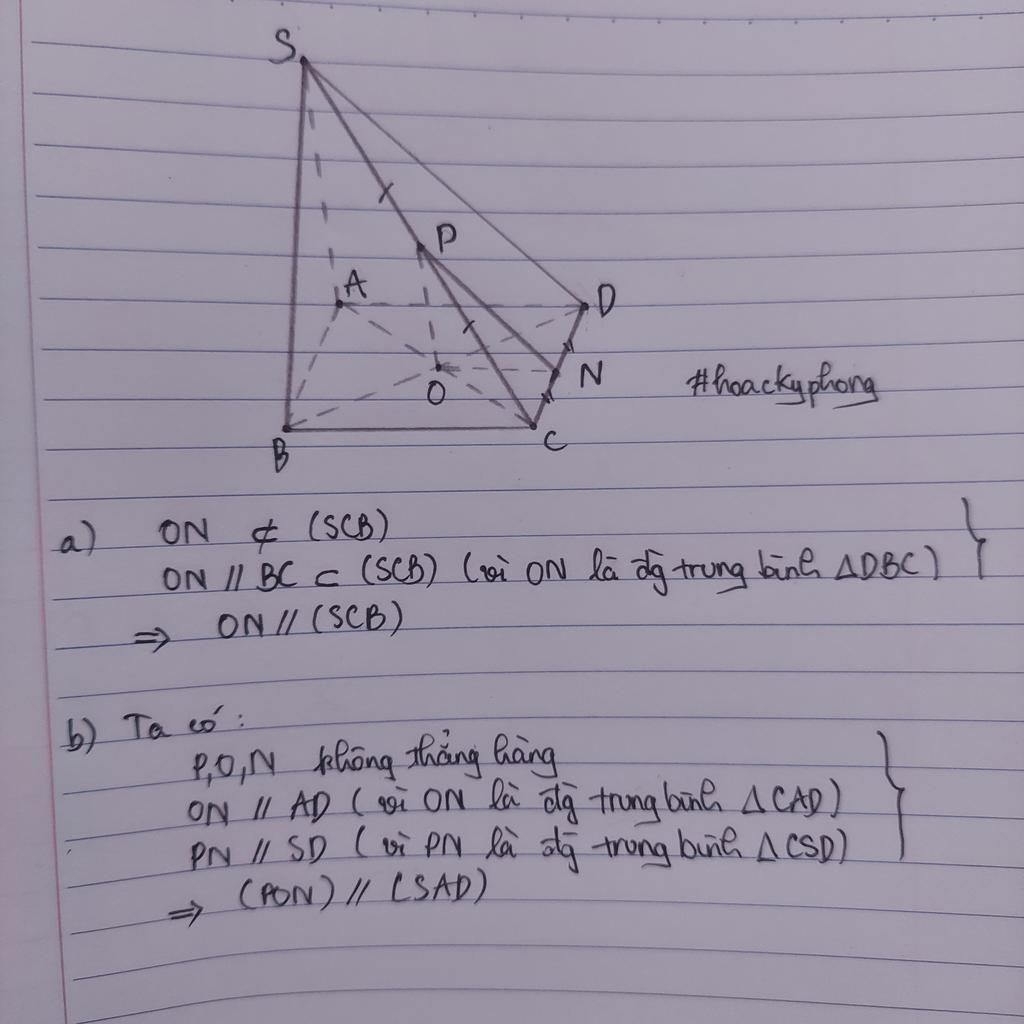 S
P
A
D
N
O
#hoackyphong
B
C
a) ON ⊄ (SCB)
ON // BC ⊂ (SCB) (vì ON là đg trung bình ΔDBC) }
⇒ ON // (SCB)
b) Ta có:
P,O,N không thẳng hàng
ON // AD (vì ON là đg trung bình ΔCAD) }
PN // SD (vì PN là đg trung bình ΔCSD)
⇒ (PON) // (SAD)